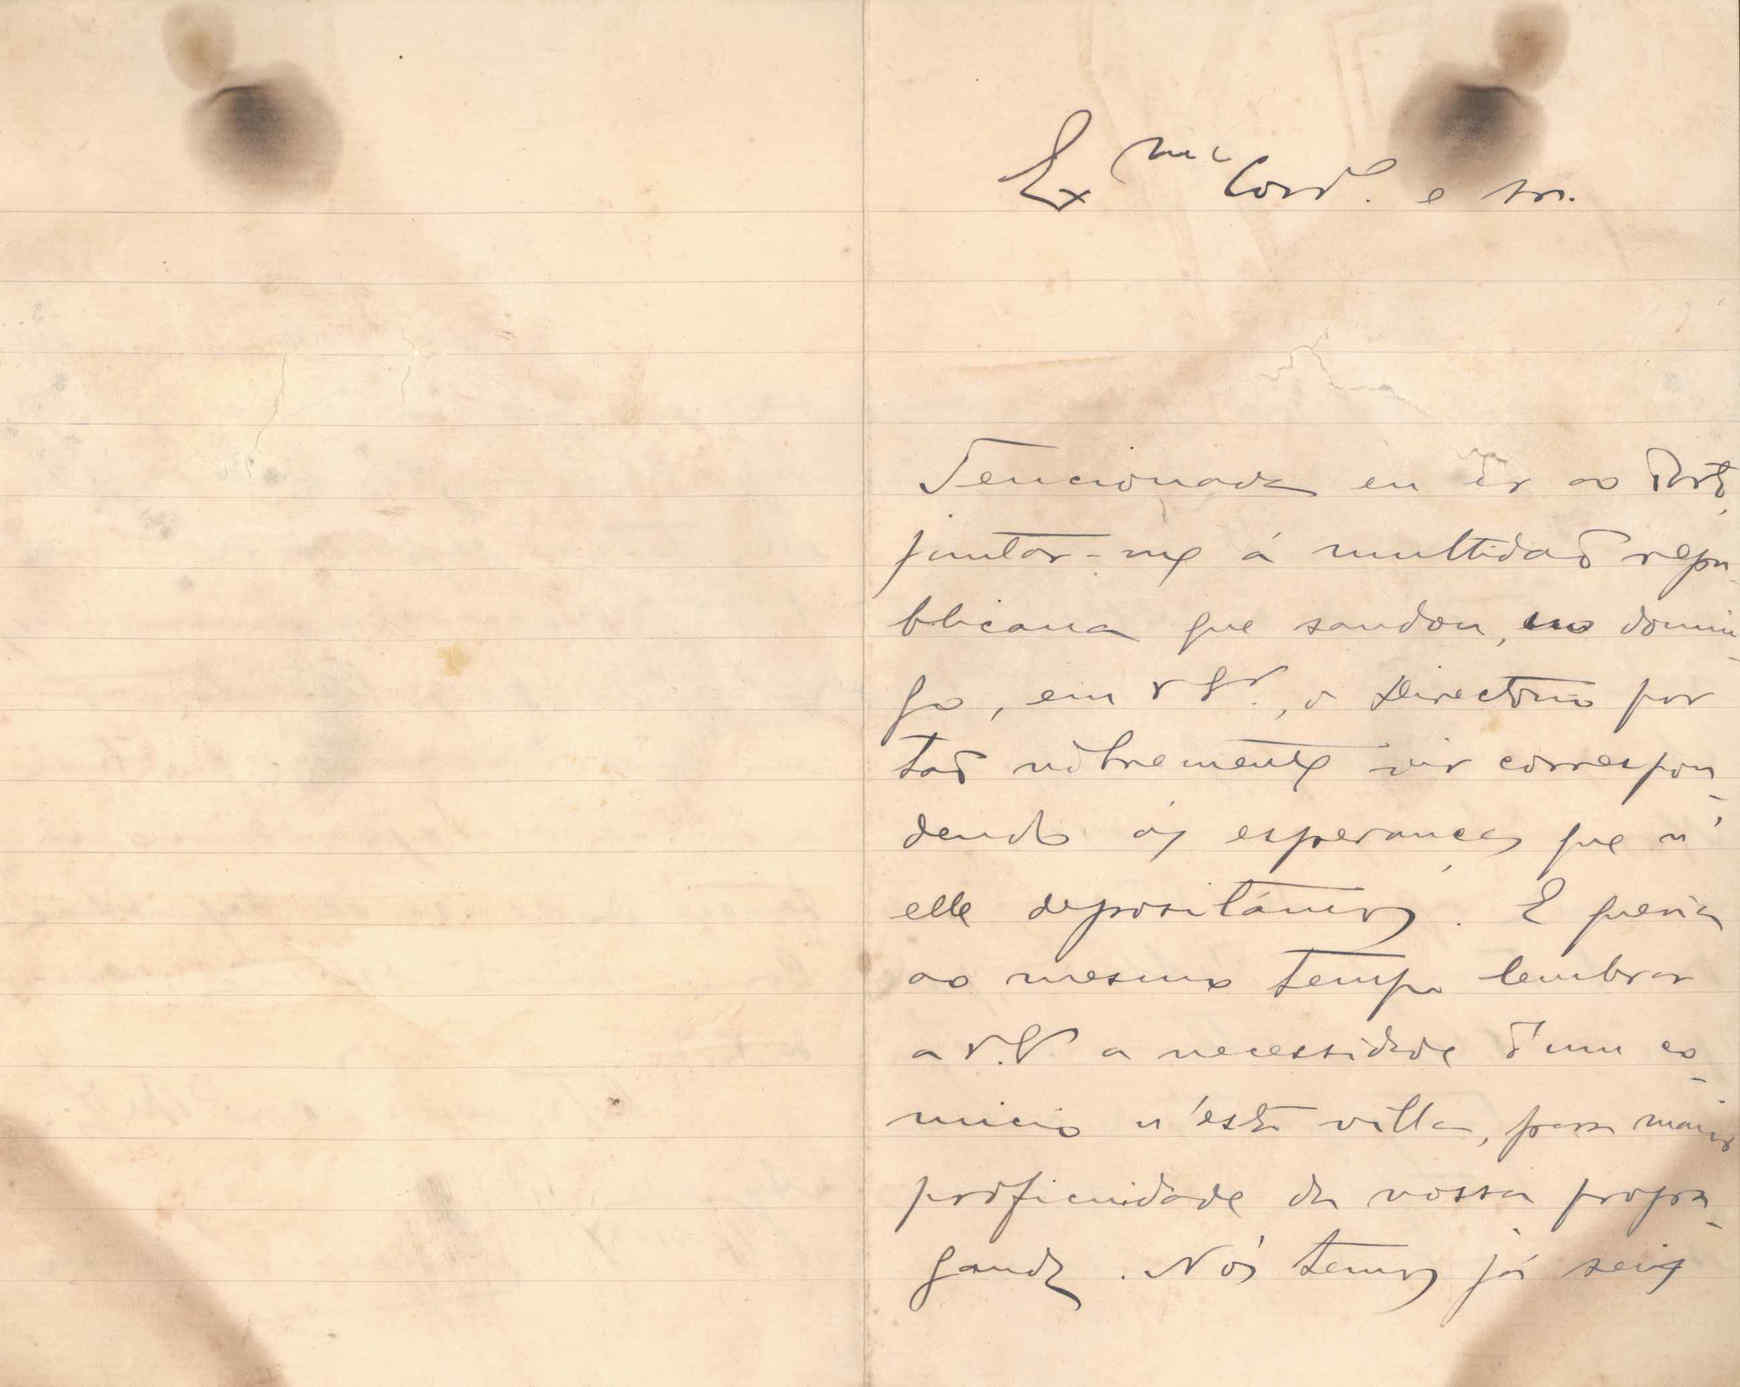 Ex.mo Corr.º e sr.
Tencionava eu ir ao Porto,
juntar-me á multidaõ repu-
blicana que saudou, no domin-
go, em V. Ex.ª, o Directorio por
taõ nobremente vir correspon-
dendo ás esperanças que n'
elle depositámos. E queria
ao mesmo tempo lembrar
a V. Ex.ª a necessidade d'um co-
micio n'esta villa, para maior
proficuidade da vossa propa-
ganda. Nós temos já seis